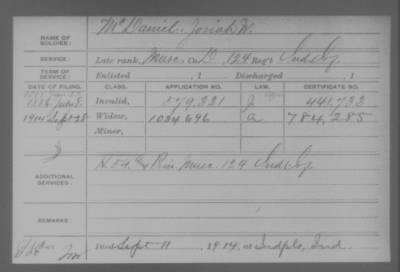 NAME OF SOLDIER: McDaniel, Josiah W.
SERVICE: Late rank, Musc. Co. D, 124 Reg't Ind. Inf.
TERM OF SERVICE: Enlisted , 1 Discharged , 1
DATE OF FILING. CLASS. APPLICATION NO. LAW. CERTIFICATE NO.
1886 July 8. Invalid, 579,331 J 441,732
1914 Sept 28 Widow, 1034,696 a 784,285
Minor,
ADDITIONAL SERVICES: Musc. 124 Ind. Inf.
REMARKS:
Died Sept 11, 1914, at Indpls, Ind.